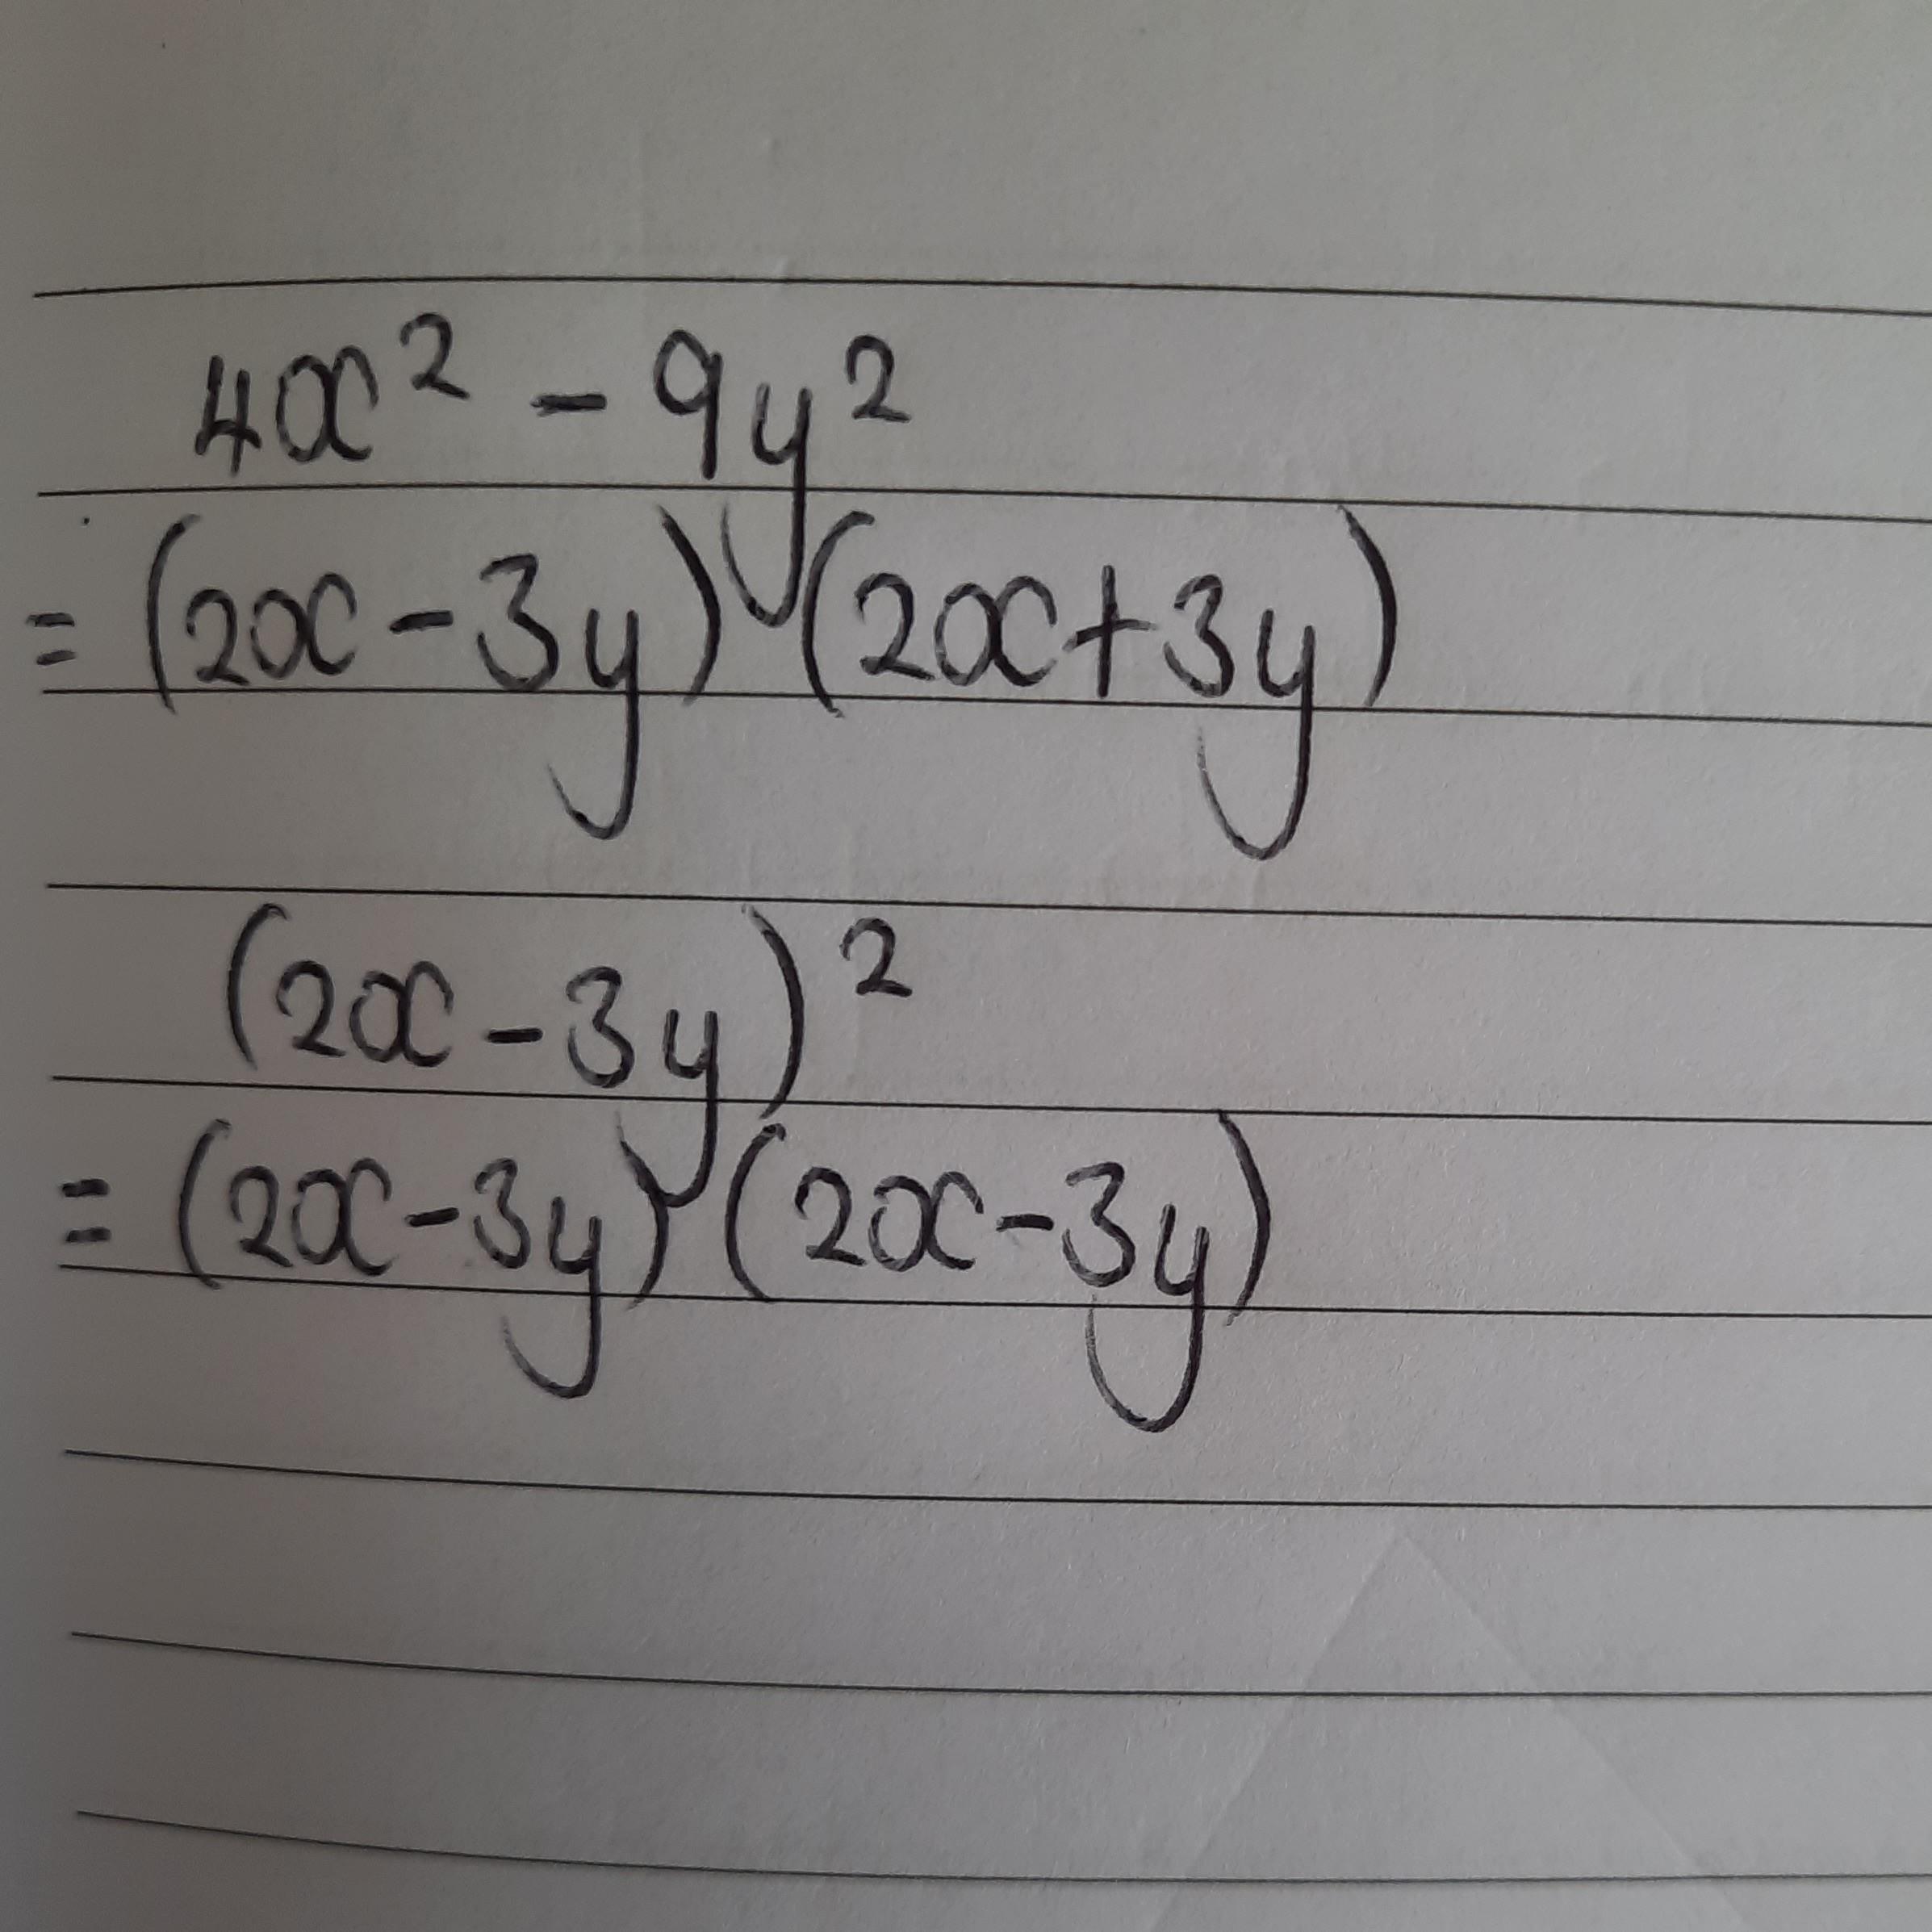 4x² - 9y²
= (2x - 3y) (2x + 3y)
(2x - 3y)²
= (2x - 3y) (2x - 3y)